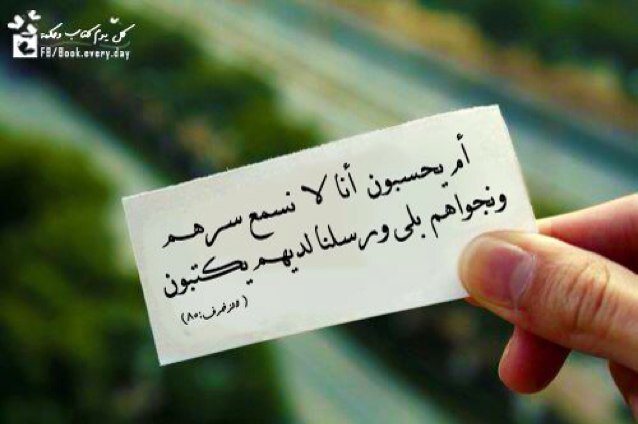 كلّ يوم كتاب وحكمة
FB/Book.every.day
أم يحسبون أنا لا نسمع سرهم
ونجواهم بلى ورسلنا لديهم يكتبون
(الزخرف:٨٠)